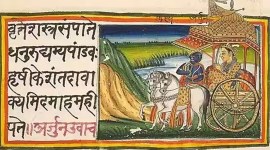 त्तेशस्त्रसंपाते
धनुरुद्यम्यपांडवः
हृषीकेशंतदावा
क्यमिदमाहमही
पते॥अर्जुनउवाच